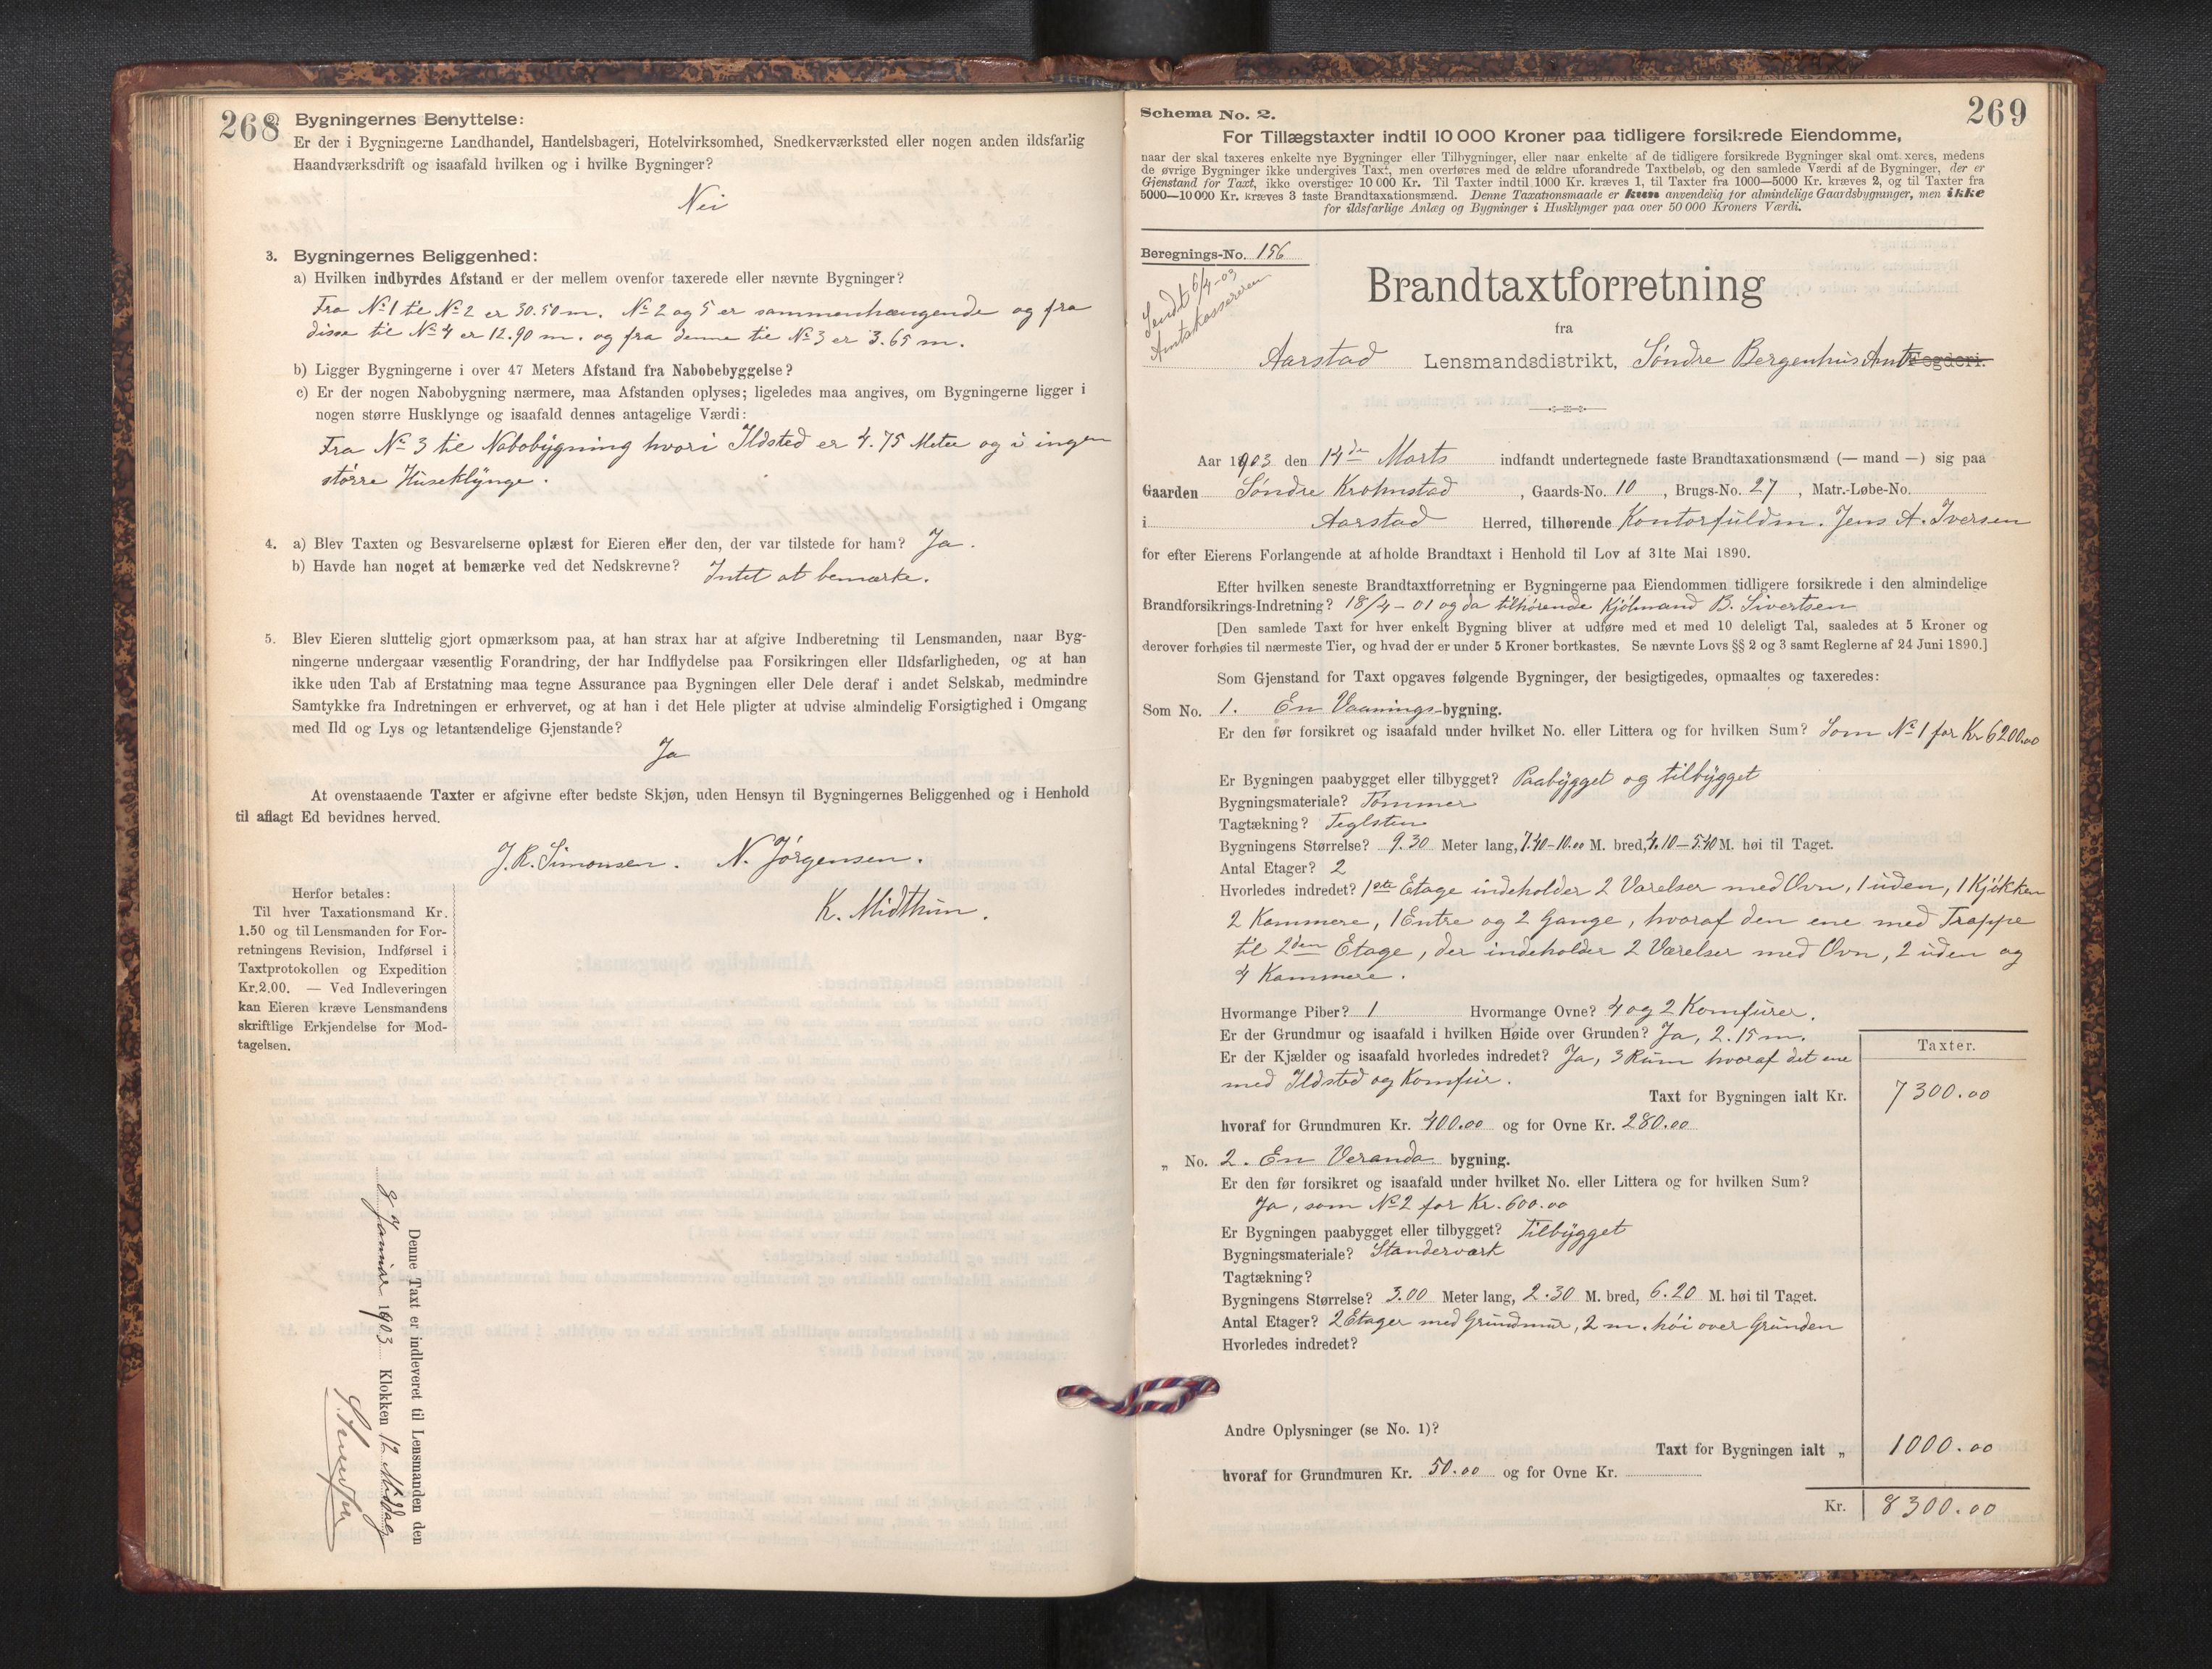 268
2. Bygningernes Benyttelse:
Er der i Bygningerne Landhandel, Handelsbageri, Hotelvirksomhed, Snedkerværksted eller nogen anden ildsfarlig
Haandværksdrift og isaafald hvilken og i hvilke Bygninger?
Nei
3. Bygningernes Beliggenhed:
a) Hvilken indbyrdes Afstand er der mellem ovenfor taxerede eller nævnte Bygninger?
Fra No 1 til No 2 er 30.50 m. No 2 og 5 er sammenhængende og fra
disse til No 4 er 12.90 m. og fra denne til No 3 er 3.65 m.
b) Ligger Bygningerne i over 47 Meters Afstand fra Nabobebyggelse?
c) Er der nogen Nabobygning nærmere, maa Afstanden oplyses; ligeledes maa angives, om Bygningerne ligger i
nogen større Husklynge og isaafald dennes antagelige Værdi:
Fra No 3 til Nabobygning hvori Ildsted er 4.75 Meter og i ingen
større Huseklynge.
4. a) Blev Taxten og Besvarelserne oplæst for Eieren eller den, der var tilstede for ham? Ja.
b) Havde han noget at bemærke ved det Nedskrevne? Intet at bemærke.
5. Blev Eieren sluttelig gjort opmærksom paa, at han strax har at afgive Indberetning til Lensmanden, naar Byg-
ningerne undergaar væsentlig Forandring, der har Indflydelse paa Forsikringen eller Ildsfarligheden, og at han
ikke uden Tab af Erstatning maa tegne Assurance paa Bygningen eller Dele deraf i andet Selskab, medmindre
Samtykke fra Indretningen er erhvervet, og at han i det Hele pligter at udvise almindelig Forsigtighed i Omgang
med Ild og Lys og letantændelige Gjenstande?
Ja
At ovenstaaende Taxter er afgivne efter bedste Skjøn, uden Hensyn til Bygningernes Beliggenhed og i Henhold
til aflagt Ed bevidnes herved.
J. R. Simonsen. N. Jørgensen.
K. Midthun.
Herfor betales:
Til hver Taxationsmand Kr.
1.50 og til Lensmanden for For-
retningens Revision, Indførsel i
Taxtprotokollen og Expedition
Kr.2.00. — Ved Indleveringen
kan Eieren kræve Lensmandens
skriftlige Erkjendelse for Mod-
tagelsen.
Denne Taxt er indleveret til Lensmanden den
8 Januar 1903 Klokken 12 Middag
269
Schema No. 2.
For Tillægstaxter indtil 10 000 Kroner paa tidligere forsikrede Eiendomme,
naar der skal taxeres enkelte nye Bygninger eller Tilbygninger, eller naar enkelte af de tidligere forsikrede Bygninger skal omt xeres, medens
de øvrige Bygninger ikke undergives Taxt, men overføres med de ældre uforandrede Taxtbeløb, og den samlede Værdi af de Bygninger, der er
Gjenstand for Taxt, ikke overstiger 10 000 Kr. Til Taxter indtil 1000 Kr. kræves 1, til Taxter fra 1000—5000 Kr. kræves 2, og til Taxter fra
5000—10 000 Kr. kræves 3 faste Brandtaxationsmænd. Denne Taxationsmaade er kun anvendelig for almindelige Gaardsbygninger, men ikke
for ildsfarlige Anlæg og Bygninger i Husklynger paa over 50 000 Kroners Værdi.
Beregnings-No. 156
Sendt 6/4-03
Amtskassereren
Brandtaxtforretning
fra
Aarstad Lensmandsdistrikt, Søndre Bergenhus Amt Fogderi.
Aar 1903 den 14de Marts indfandt undertegnede faste Brandtaxationsmænd (— mand —) sig paa
Gaarden Søndre Krohnstad, Gaards-No. 10, Brugs-No. 27, Matr.-Løbe-No.
i Aarstad Herred, tilhørende Kontorfuldm. Jens A. Iversen
for efter Eierens Forlangende at afholde Brandtaxt i Henhold til Lov af 31te Mai 1890.
Efter hvilken seneste Brandtaxtforretning er Bygningerne paa Eiendommen tidligere forsikrede i den almindelige
Brandforsikrings-Indretning? 18/4-01 og da tilhørende Kjølmand B. Sivertsen
[Den samlede Taxt for hver enkelt Bygning bliver at udføre med et med 10 deleligt Tal, saaledes at 5 Kroner og
derover forhøies til nærmeste Tier, og hvad der er under 5 Kroner bortkastes. Se nævnte Lovs §§ 2 og 3 samt Reglerne af 24 Juni 1890.]
Som Gjenstand for Taxt opgaves følgende Bygninger, der besigtigedes, opmaaltes og taxeredes:
Som No. 1. En Vaanings-bygning.
Er den før forsikret og isaafald under hvilket No. eller Littera og for hvilken Sum? Som No 1 for Kr 6200.00
Er Bygningen paabygget eller tilbygget? Paabygget og tilbygget
Bygningsmateriale? Tømmer
Tagtækning? Teglsten
Bygningens Størrelse? 9.30 Meter lang, 7.40-10.00 M. bred, 4.10-5.40 M. høi til Taget.
Antal Etager? 2
Hvorledes indredet? 1ste Etage indeholder 2 Værelser med Ovn, 1 uden, 1 Kjøkken
2 Kammere, 1 Entre og 2 Gange, hvoraf den ene med Trappe
til 2den Etage, der indeholder 2 Værelser med Ovn, 2 uden og
4 Kammere.
Hvormange Piber? 1 Hvormange Ovne? 4 og 2 Komfurer.
Er der Grundmur og isaafald i hvilken Høide over Grunden? Ja, 2.15 m.
Er der Kjælder og isaafald hvorledes indredet? Ja, 3 Rum hvoraf det ene
med Ildsted og Komfur.
Taxter.
Taxt for Bygningen ialt Kr. 7300.00
hvoraf for Grundmuren Kr. 400.00 og for Ovne Kr. 280.00
„ No. 2. En Veranda bygning.
Er den før forsikret og isaafald under hvilket No. eller Littera og for hvilken Sum?
Ja, som No 2 for Kr. 600.00
Er Bygningen paabygget eller tilbygget? Tilbygget
Bygningsmateriale? Standerværk
Tagtækning?
Bygningens Størrelse? 3.00 Meter lang, 2.30 M. bred, 6.20 M. høi til Taget.
Antal Etager? 2 Etager med Grundmur, 2 m. høi over Grunden
Hvorledes indredet?
Andre Oplysninger (se No. 1)?
Taxt for Bygningen ialt „ 1000.00
hvoraf for Grundmuren Kr. 50.00 og for Ovne Kr.
Kr. 8300.00